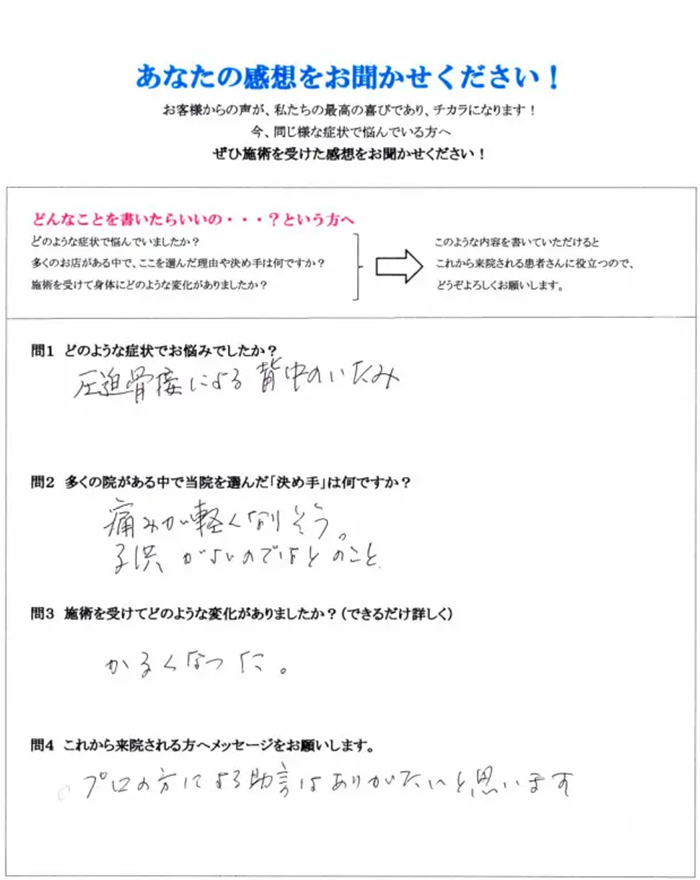 あなたの感想をお聞かせください！
お客様からの声が、私たちの最高の喜びであり、チカラになります！
今、同じ様な症状で悩んでいる方へ
ぜひ施術を受けた感想をお聞かせください！
どんなことを書いたらいいの・・・？という方へ
どのような症状で悩んでいましたか？
多くのお店がある中で、ここを選んだ理由や決め手は何ですか？
施術を受けて身体にどのような変化がありましたか？
このような内容を書いていただけると
これから来院される患者さんに役立つので、
どうぞよろしくお願いします。
問1 どのような症状でお悩みでしたか？
圧迫骨接による背中のいたみ
問2 多くの院がある中で当院を選んだ「決め手」は何ですか？
痛みが軽くなりそう。
子供がよいのではとのこと
問3 施術を受けてどのような変化がありましたか？（できるだけ詳しく）
かるくなった。
問4 これから来院される方へメッセージをお願いします。
プロの方による助言はありがたいと思います